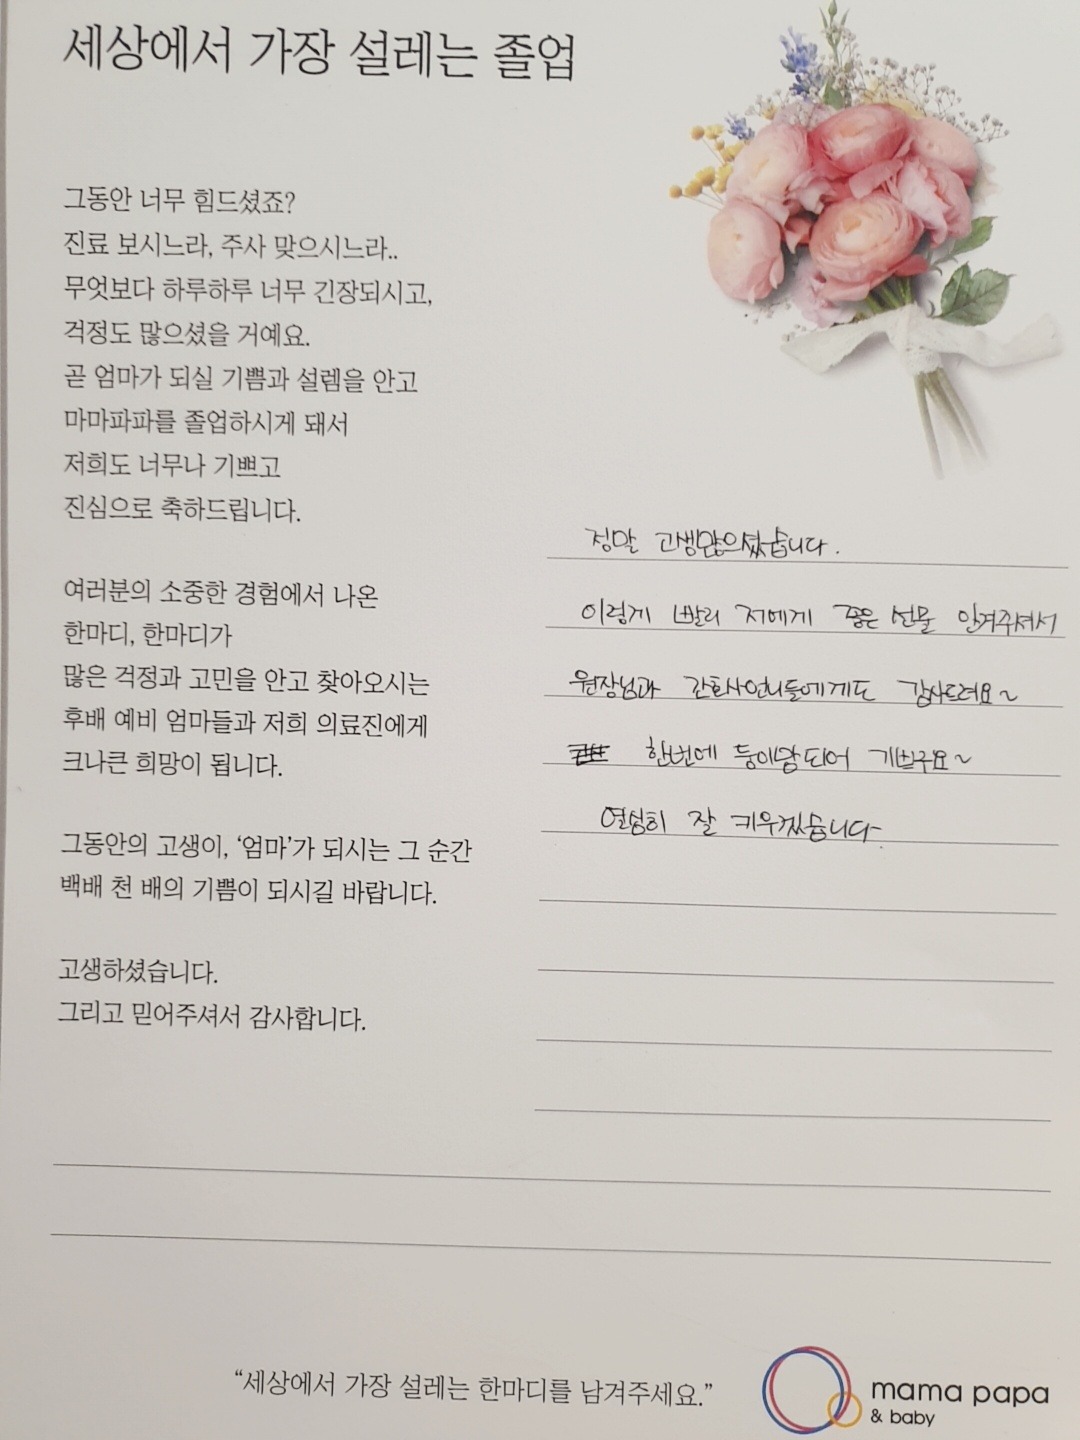 세상에서 가장 설레는 졸업
그동안 너무 힘드셨죠?
진료 보시느라, 주사 맞으시느라..
무엇보다 하루하루 너무 긴장되시고,
걱정도 많으셨을 거예요.
곧 엄마가 되실 기쁨과 설렘을 안고
마마파파를 졸업하시게 돼서
저희도 너무나 기쁘고
진심으로 축하드립니다.
여러분의 소중한 경험에서 나온
한마디, 한마디가
많은 걱정과 고민을 안고 찾아오시는
후배 예비 엄마들과 저희 의료진에게
크나큰 희망이 됩니다.
그동안의 고생이, ‘엄마’가 되시는 그 순간
백배 천 배의 기쁨이 되시길 바랍니다.
고생하셨습니다.
그리고 믿어주셔서 감사합니다.
정말 고생많으셨습니다.
이렇게 빨리 저에게 좋은 선물 안겨주셔서
원장님과 간호사언니들에게도 감사드려요~
한번에 둥이맘되어 기쁘구요~
열심히 잘 키우겠습니다.
“세상에서 가장 설레는 한마디를 남겨주세요.”
mama papa
& baby